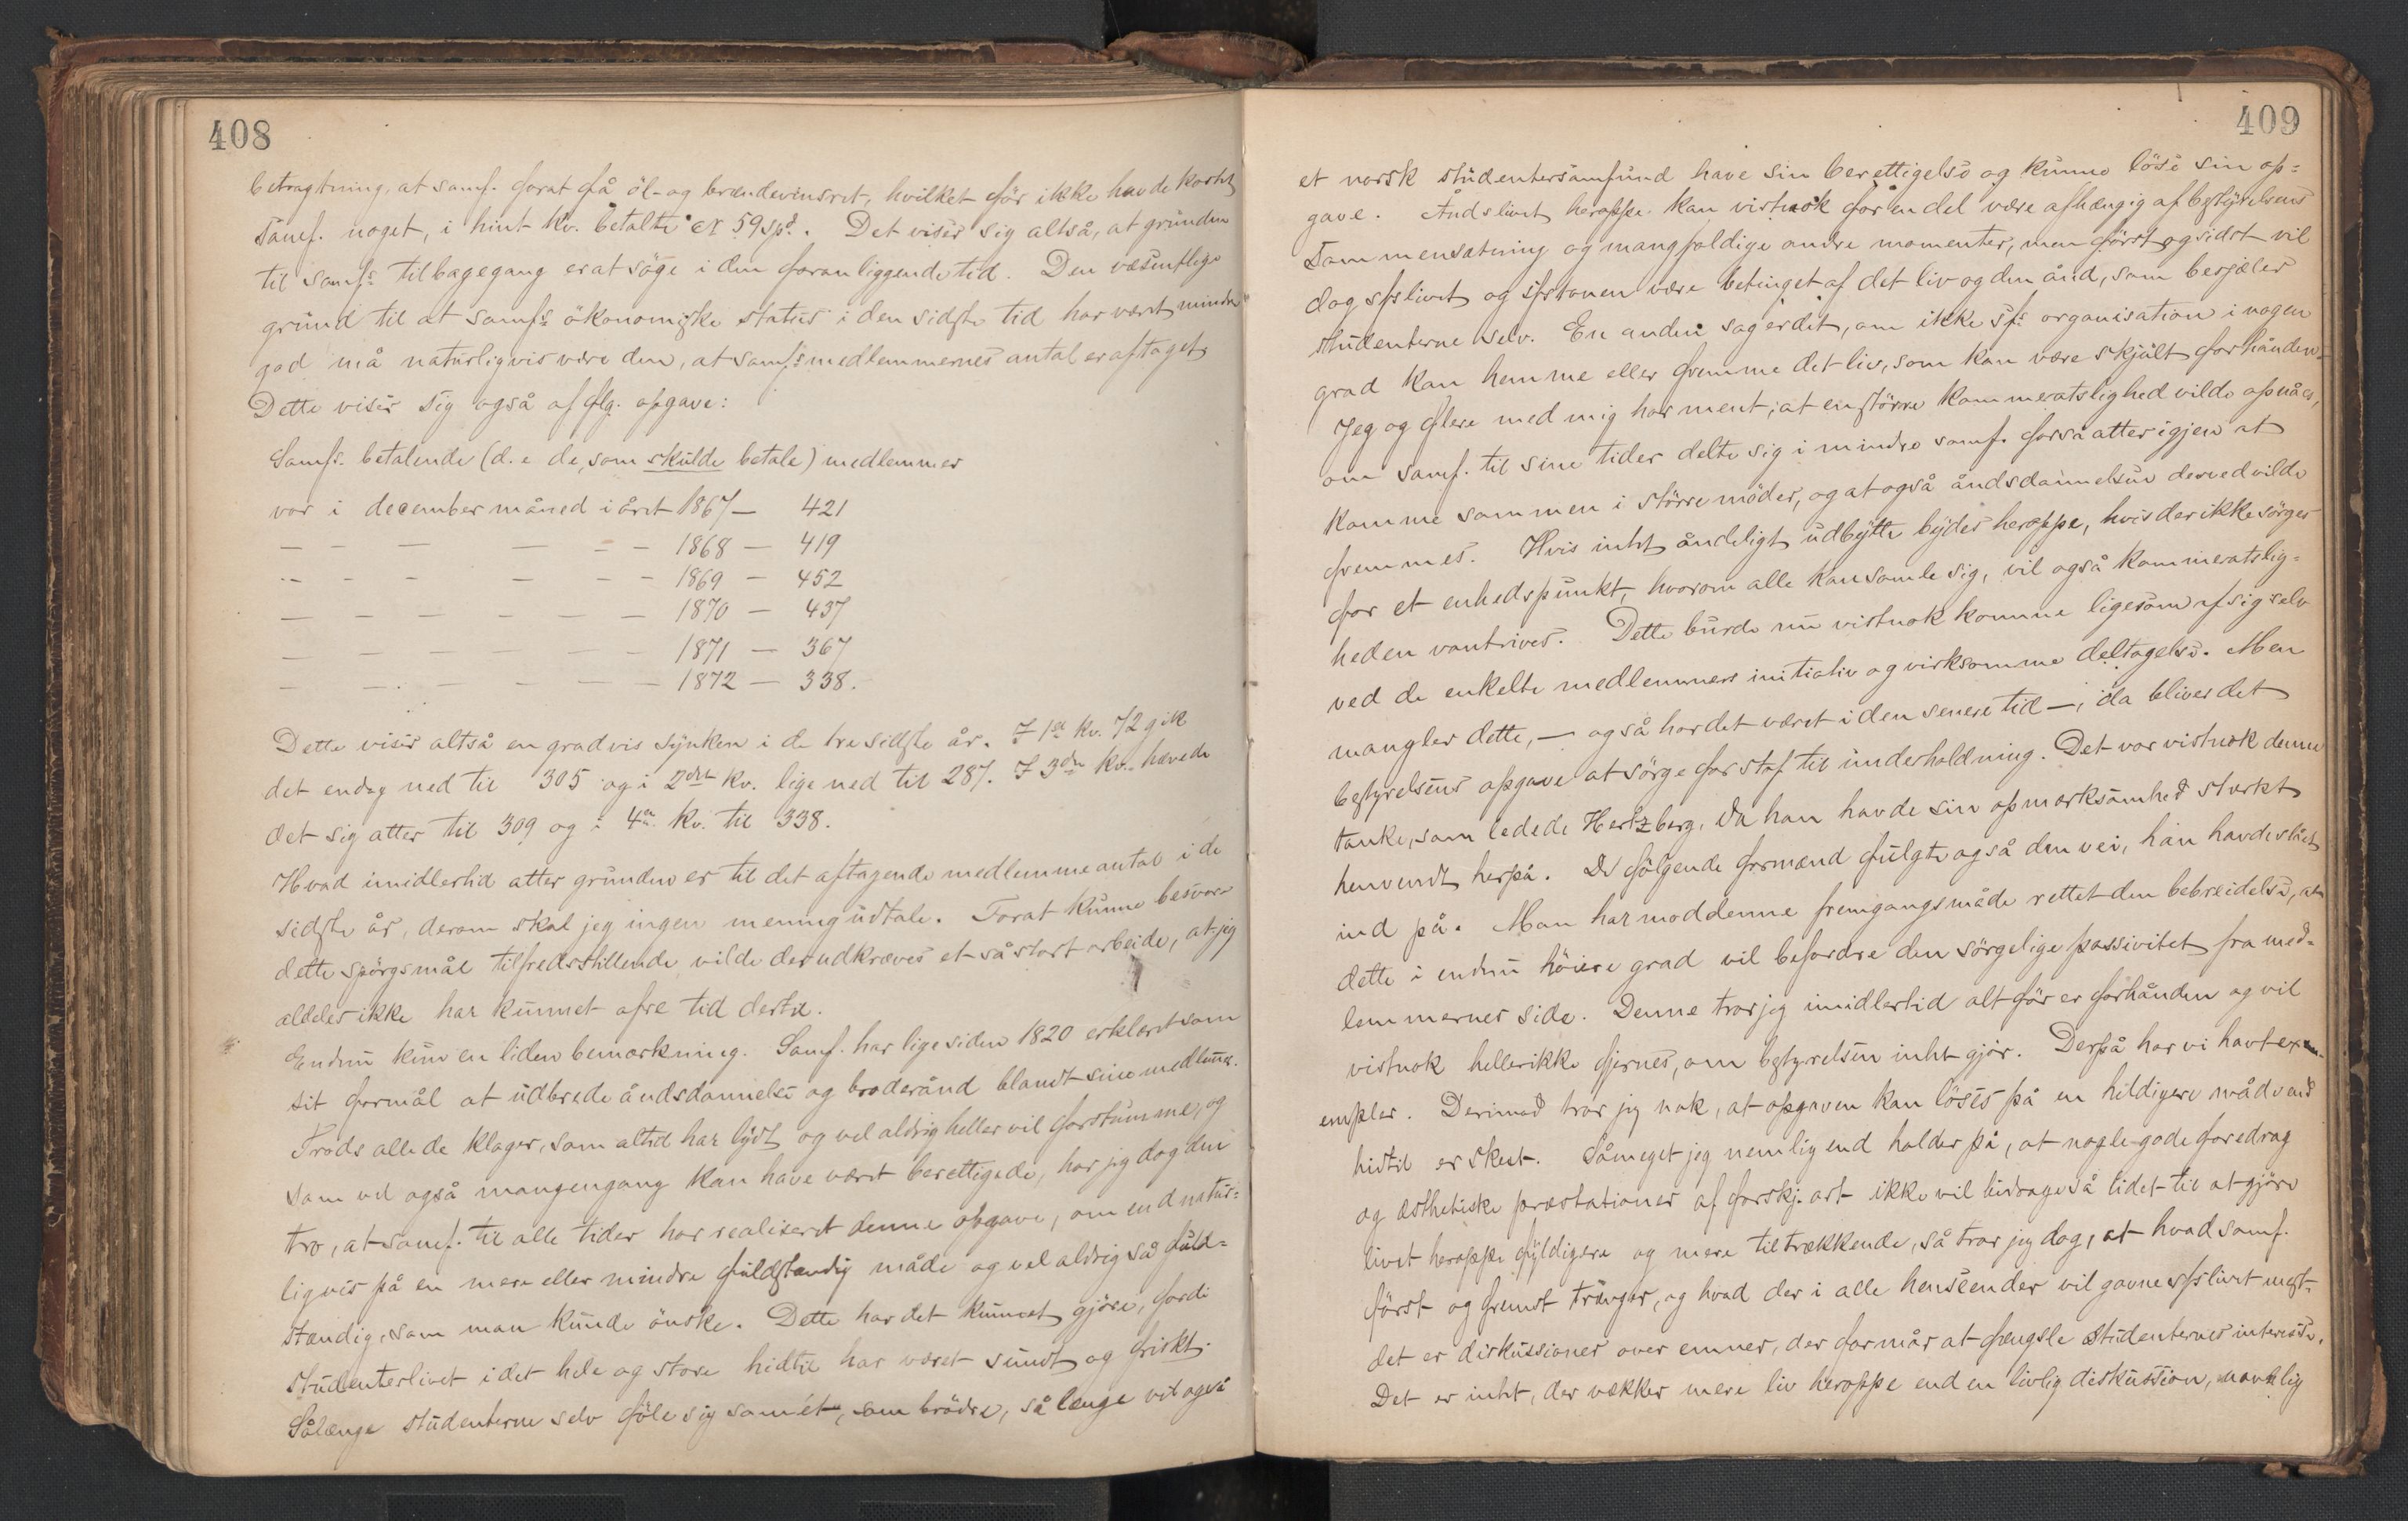 408
betragtning, at samf. forat få öl- og brændevinsret, hvilket før ikke havde kostet
Samf. noget, i hint kv. betalte ca 59 spd. Det viser sig altså, at grunden
til samfs. tilbagegang er at søge i den foranliggende tid. Den væsentlige
grund til at samfs. ökonomiske status i den sidste tid har været mindre
god må naturligvis være den, at samfs. medlemmernes antal er aftaget.
Dette viser sig også af flg. opgave:
Samfs. betalende (d. e de, som skulde betale) medlemmer
var i december måned i året 1867 — 421
— — — — — — 1868 — 419
— — — — — — 1869 — 452
— — — — — — 1870 — 437
— — — — — — 1871 — 367
— — — — — — 1872 — 338.
Dette viser altså en gradvis synken i de tre sidste år. I 1ste kv. 72 gik
det endog ned til 305 og i 2det kv. lige ned til 287. I 3die kv. hævede
det sig atter til 309 og i 4de kv. til 338.
Hvad imidlertid atter grunden er til det aftagende medlemmeantal i de
sidste år, derom skal jeg ingen mening udtale. Forat kunne besvare
dette spörgsmål tilfredsstillende vilde der udkræves et så stort arbeide, at jeg
aldeles ikke har kunnet ofre tid dertil.
Endnu kun en liden bemærkning. Samf. har lige siden 1820 erklæret som
sit formål at udbrede åndsdannelse og broderånd blandt sine medlemer.
Trods alle de klager, som altid har lydt og vel aldrig heller vil forstumme, og
som vel også mangengang kan have været berettigede, har jeg dog den
tro, at samf. til alle tider har realiseret denne opgave, om end natur=
ligvis på en mere eller mindre fuldstændig måde og vel aldrig så fuld=
stændig, som man kunde önske. Dette har det kunnet gjöre, fordi
studenterlivet i det hele og store hidtil har været sundt og friskt.
Sålænge studenterne selv föle sig som ét, som brödre, så længe vil også
409
et norsk studentersamfund have sin berettigelse og kunne löse sin op=
gave. Åndslivet heroppe kan vistnok for en del være afhængig af bestyrelsens
Sammensætning og mangfoldige andre momenter, men först og sidst vil
dog sfslivet og sfstonen være betinget af det liv og den ånd, som besjæler
studenterne selv. En anden sag er det, om ikke sfs organisation i nogen
grad kan hemme eller fremme det liv, som kan være skjült forhånden.
Jeg og flere med mig har ment, at en större kammeratslighed vilde opnåes,
om samf. til sine tider delte sig i mindre samf. for så atter igjen at
komme sammen i större möder, og at også åndsdannelsen derved vilde
fremmes. Hvis intet åndeligt udbytte bydes heroppe, hvis der ikke sörges
for et enhedspunkt, hvorom alle kan samle sig, vil også kammeratslig=
heden vantrives. Dette burde nu vistnok komme ligesom af sig selv
ved de enkelte medlemmers initiativ og virksomme deltagelse. Men
mangler dette, — og så har det været i den senere tid —, da bliver det
bestyrelsens opgave at sörge for stof til underholdning. Det var vistnok denne
tanke, som ledede Hertzberg, da han havde sin opmærksomhed stærkt
henvendt herpå. De fölgende formænd fulgte også den vei, han havde slået
ind på. Man har mod denne fremgangsmåde rettet den bebreidelse, at
dette i endnu höiere grad vil befordre den sörgelige passivitet fra med=
lemmernes side. Denne tror jeg imidlertid alt för er forhånden og vil
vistnok heller ikke fjernes, om bestyrelsen intet gjör. Derpå har vi havt ex=
empler. Derimod tror jeg nok, at opgaven kan löses på en heldigere måde end
hidtil er skeet. Såmeget jeg nemlig end holder på, at nogle gode foredrag
og æsthetiske præstationer af forskj. art ikke vil bidrage så lidet til at gjöre
livet heroppe fyldigere og mere tiltrækkende, så tror jeg dog, at hvad samf.
först og fremst trænger, og hvad der i alle henseender vil gavne sfslivet mest
det er diskussioner over emner, der formår at fængsle studenternes interesse.
Det er intet, der vækker mere liv heroppe end en livlig diskussion, navnlig